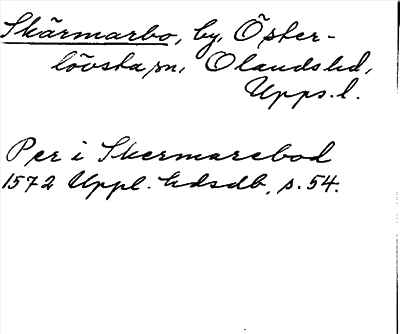 Skärmarbo, by, Öster-
lövsta sn, Olands hd,
Upps. l.
Per i Skermarebod
1572 Uppl. hdsdb. s. 54.